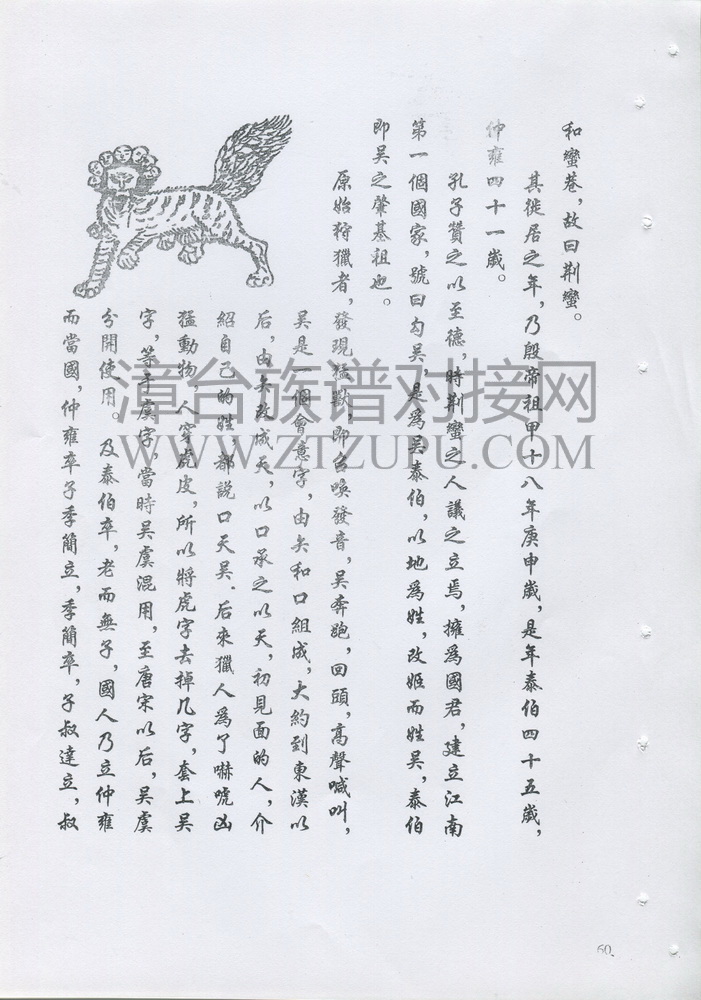 和蠻巷，故曰荆蠻。
其徙居之年，乃殷帝祖甲十八年庚申歲，是年泰伯四十五歲，
仲雍四十一歲。
孔子贊之以至德，時荆蠻之人議之立焉，擁爲國君，建立江南
第一個國家，號曰勾吴，是爲吴泰伯，以地爲姓，改姬而姓吴，泰伯
即吴之肇基祖也。
原始狩獵者，發現猛獸，即召喚發音，吴奔跑，回頭，高聲喊叫，
吴是一個會意字，由矢和口組成，大約到東漢以
后，由矢改成天，以口承之以天，初見面的人，介
紹自己的姓都説口天吴．后來獵人爲了嚇唬凶
猛動物，人穿虎皮，所以將虎字去掉几字，套上吴
字，等于虞字，當時吴虞混用，至唐宋以后，吴虞
分開使用。及泰伯卒，老而無子，國人乃立仲雍
而當國，仲雍卒子季簡立，季簡卒，子叔達立，叔
漳台族谱对接网
WWW.ZTZUPU.COM
60